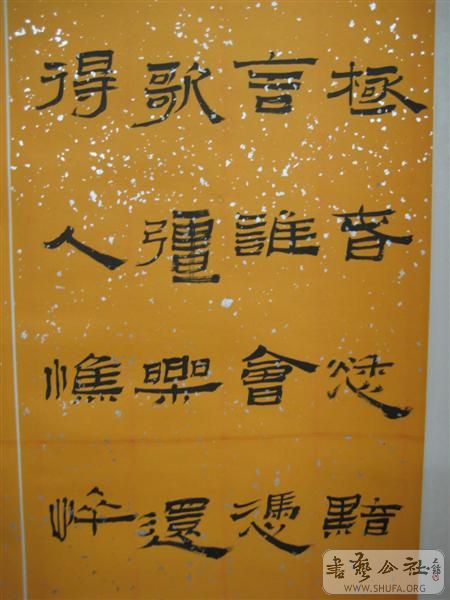 極春愁黯
言誰會憑
歌彊樂還
得人憔悴
書藝公社
WWW.SHUFA.ORG